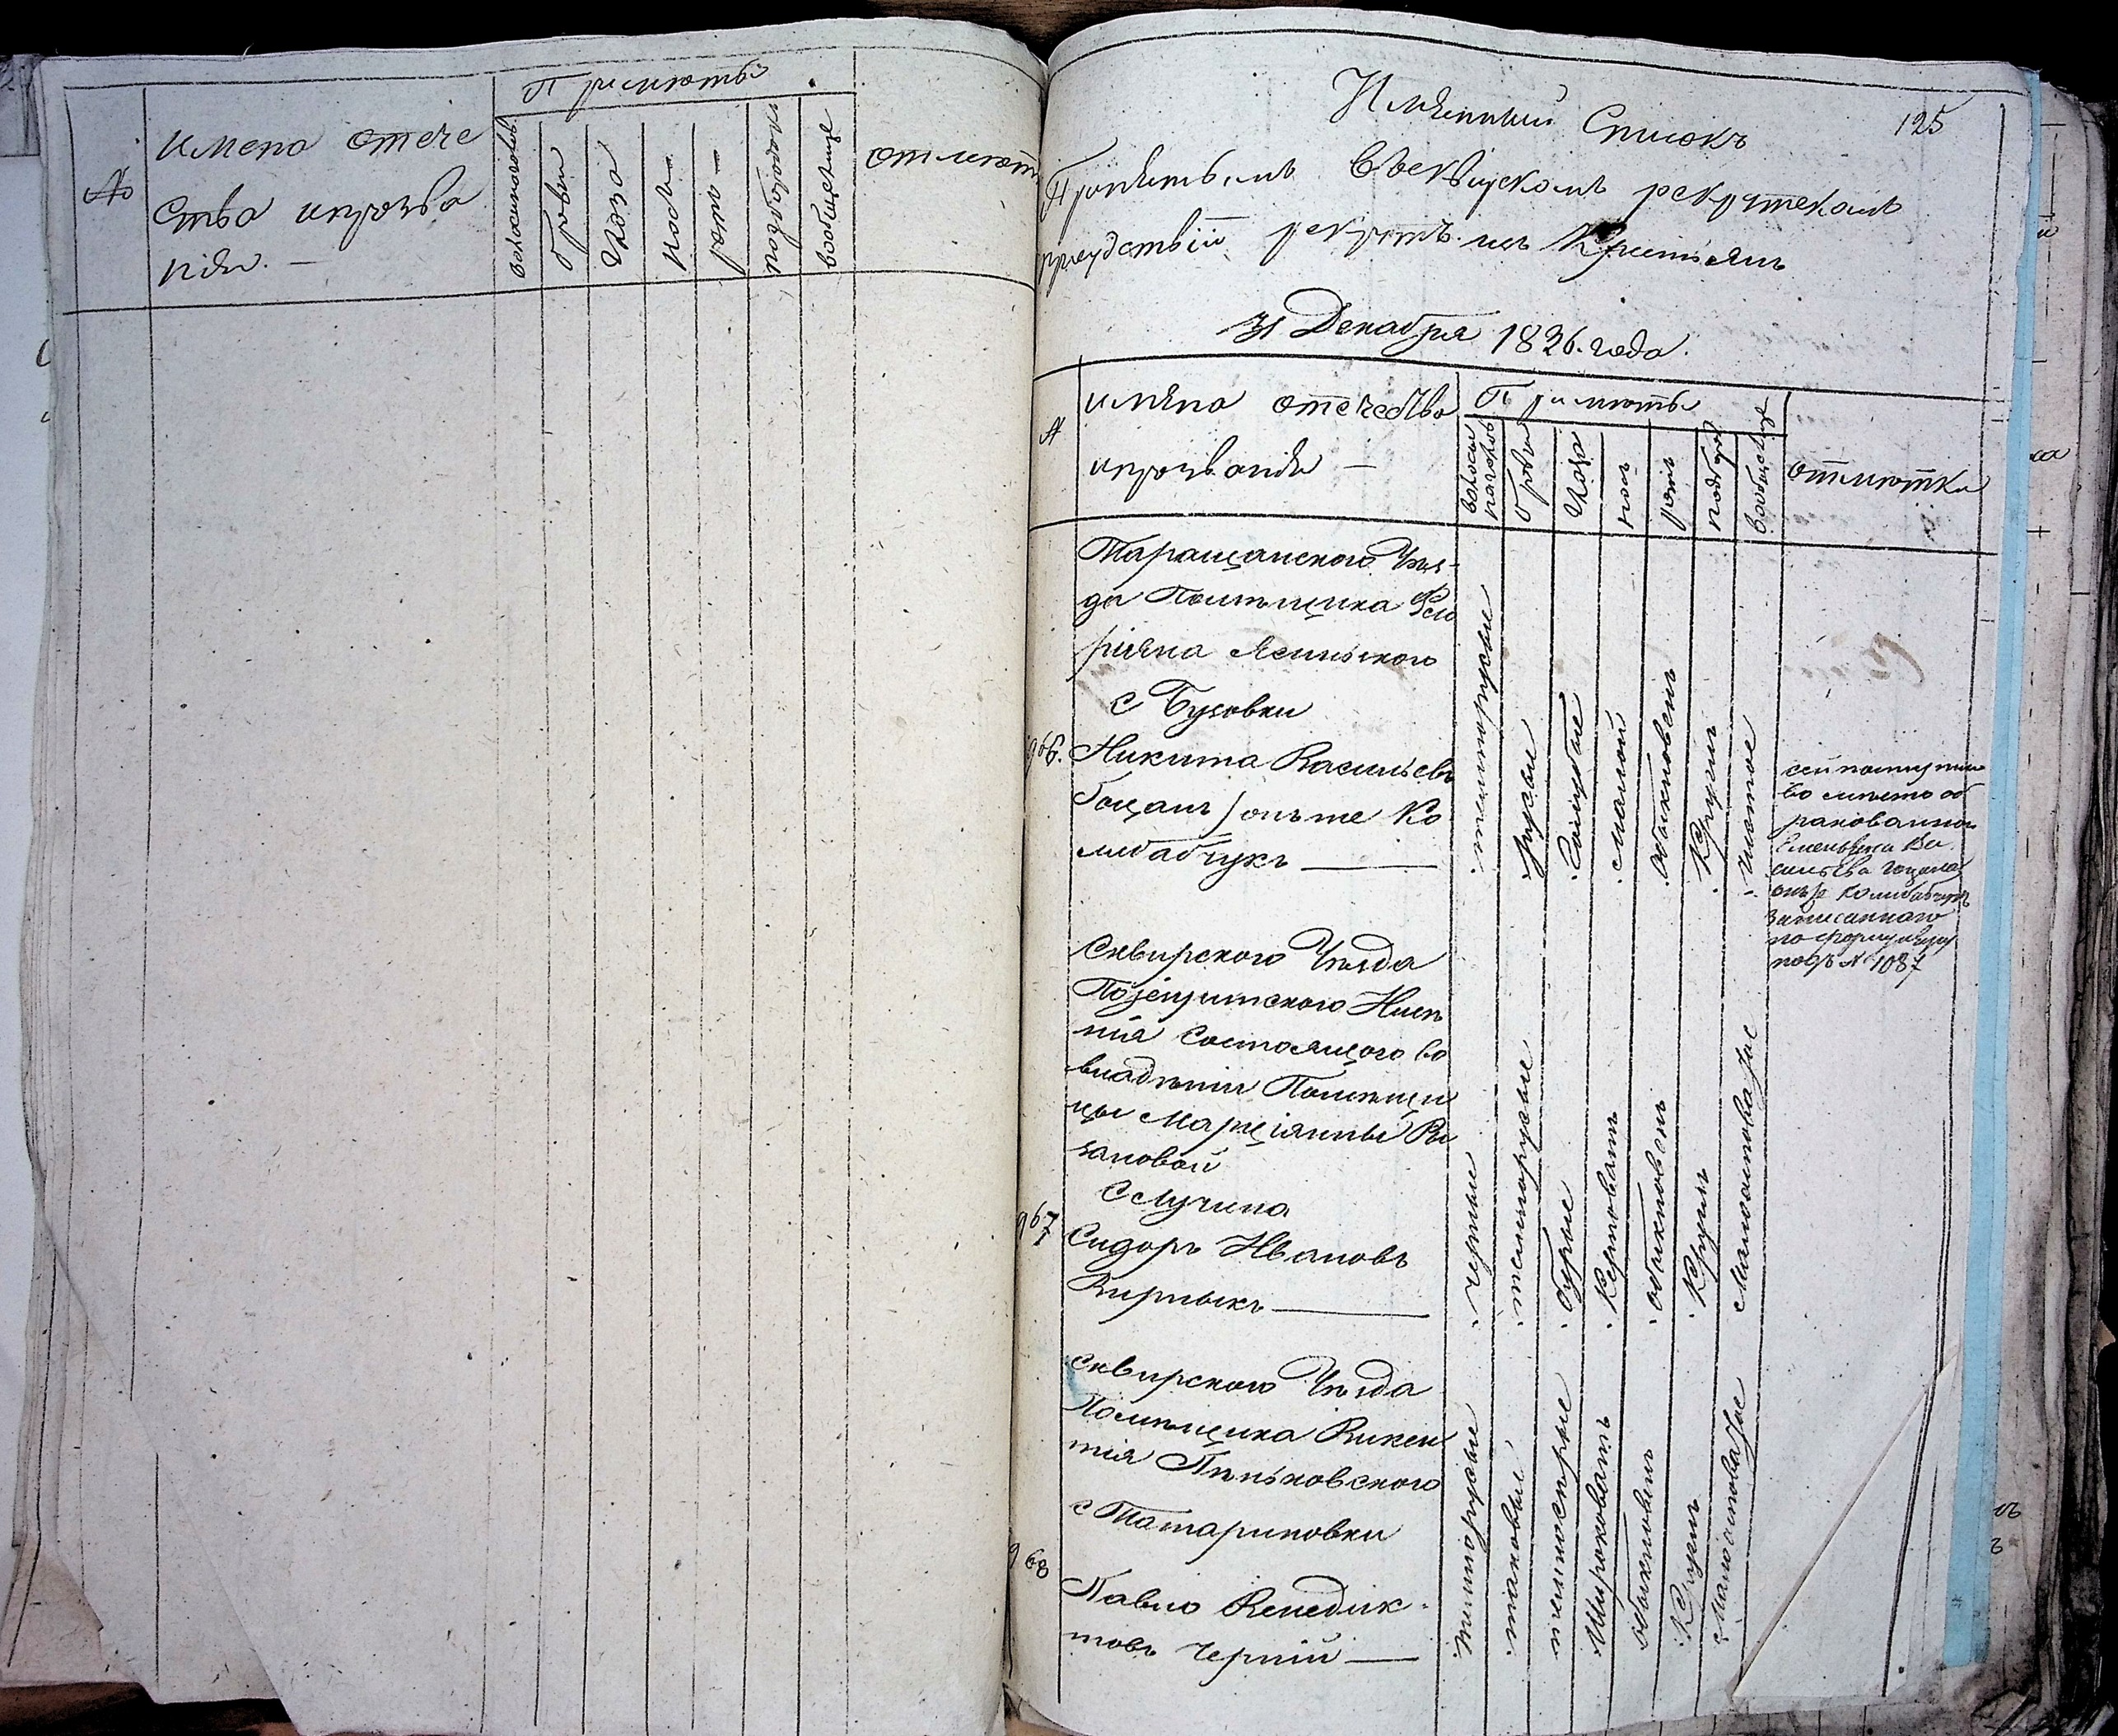 №
имена отече
ства ипрозва
нія. —
Примѣты
волосинаголовѣ
брови
глаза
носъ —
ротъ —
подбородокъ
вообщелице
отмѣтк
125
Имянный Списокъ
Принятымъ рекрутскомъ
присудствіи рекрутъ изъ Крестьянъ
31 Декабря 1826. года.
№
имяна отечества
ипрозванія —
Примѣты
волосы
наголов
брови
глаза
носъ
ротъ
подбород
вообщелице
отмѣтка
Таращанскаго Уѣз-
да Помѣщика
Ясинскаго
с Буковки
966. Никита Васильевъ
боцанъ / онъже Ко
либабчукъ —
темнорусые
русые
Голубые
малой
обыкновенъ
Круглъ
чистое
сей поступил
во мѣсто об
ракованнаго
Емельяна Ва
сильева боцана
онъже Колибабчукъ
записаннаго
по
подъ № 1087
Сквирского Уѣзда
Поіезуитского Имѣ
нія Состоящого во
владѣніи Помѣщи
цы Марціянны Ро
зановой
с Лучина
967 Сидоръ Ивановъ
Кирпыкъ —
черные
темнорусые
бурые
Керповатъ
обыкновенъ
Круглъ
Малоостоватое
Сквирского Уѣзда
Помѣщика Викен
тія Пѣньковского
с Татариновки
968
Павло Венедик-
товъ Черній —
темнорусые
таковые
темносѣрые
Широковатъ
обыкновенъ
Круглъ
Малоостоватое